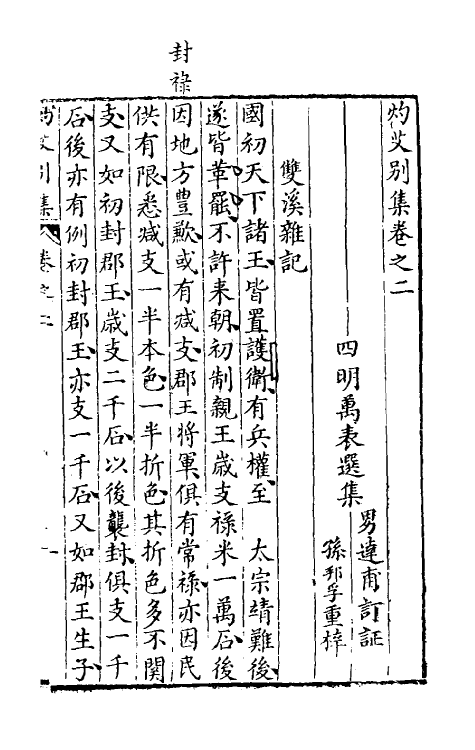 封祿
灼艾別集卷之二
四明萬表選集
男達甫訂証
孫邦孚重梓
雙溪雜記
國初天下諸王皆置護衛有兵權至　太宗靖難後
遂皆革罷不許来朝初制親王歲支祿米一萬石後
因地方豊歉或有减支郡王將軍俱有常祿亦因民
供有限悉减支一半本色一半折色其折色多不関
支又如初封郡王歲支二千石以後襲封俱支一千
石後亦有例初封郡王亦支一千石又如郡王生子
灼艾別集
卷之二
一